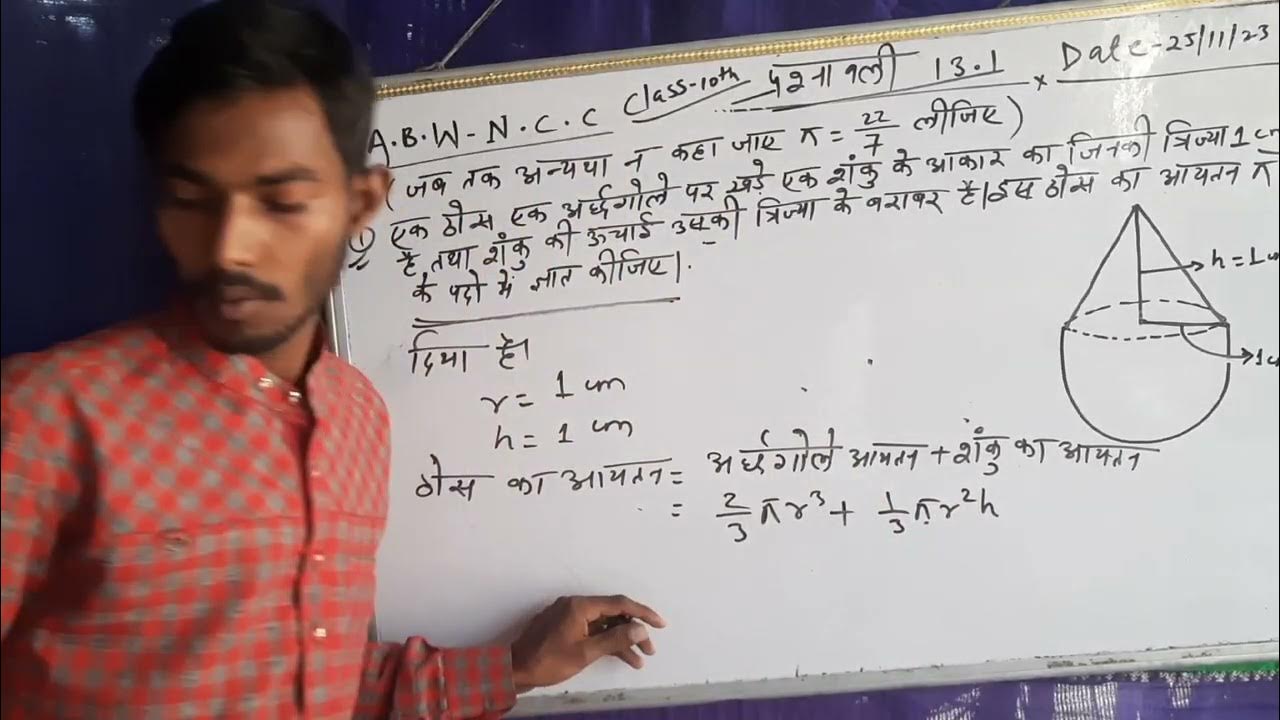 A.B.W-N.C.C Class-10th प्रश्नावली 13.1 × Date-25/11/23
(जब तक अन्यथा न कहा जाए π = 22/7 लीजिए)
① एक ठोस एक अर्धगोले पर खड़े एक शंकु के आकार का जिनकी त्रिज्या 1 cm
है तथा शंकु की ऊचाई उसकी त्रिज्या के बराबर है। इस ठोस का आयतन π
के पदो में ज्ञात कीजिए।
h = 1 cm
1 cm
दिया है।
r = 1 cm
h = 1 cm
ठोस का आयतन = अर्धगोले आयतन + शंकु का आयतन
= 2/3 πr³ + 1/3 πr²h